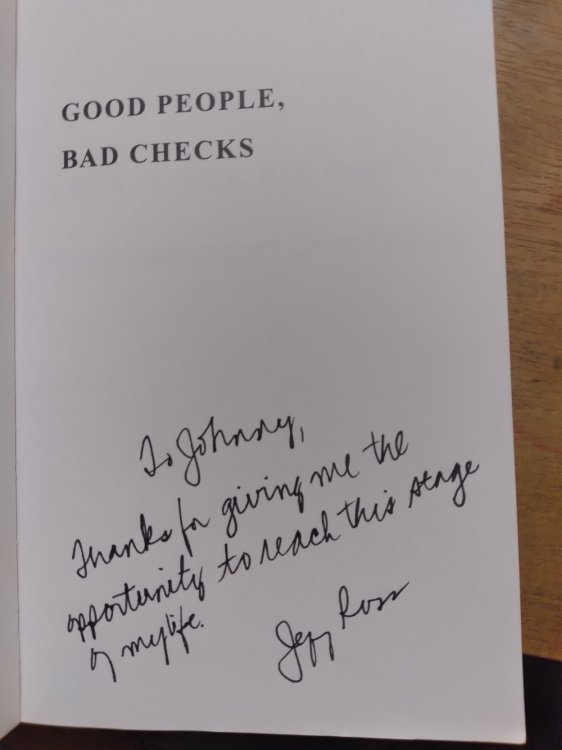 GOOD PEOPLE,
BAD CHECKS
To Johnny,
Thanks for giving me the
opportunity to reach this stage
of my life.
Ross